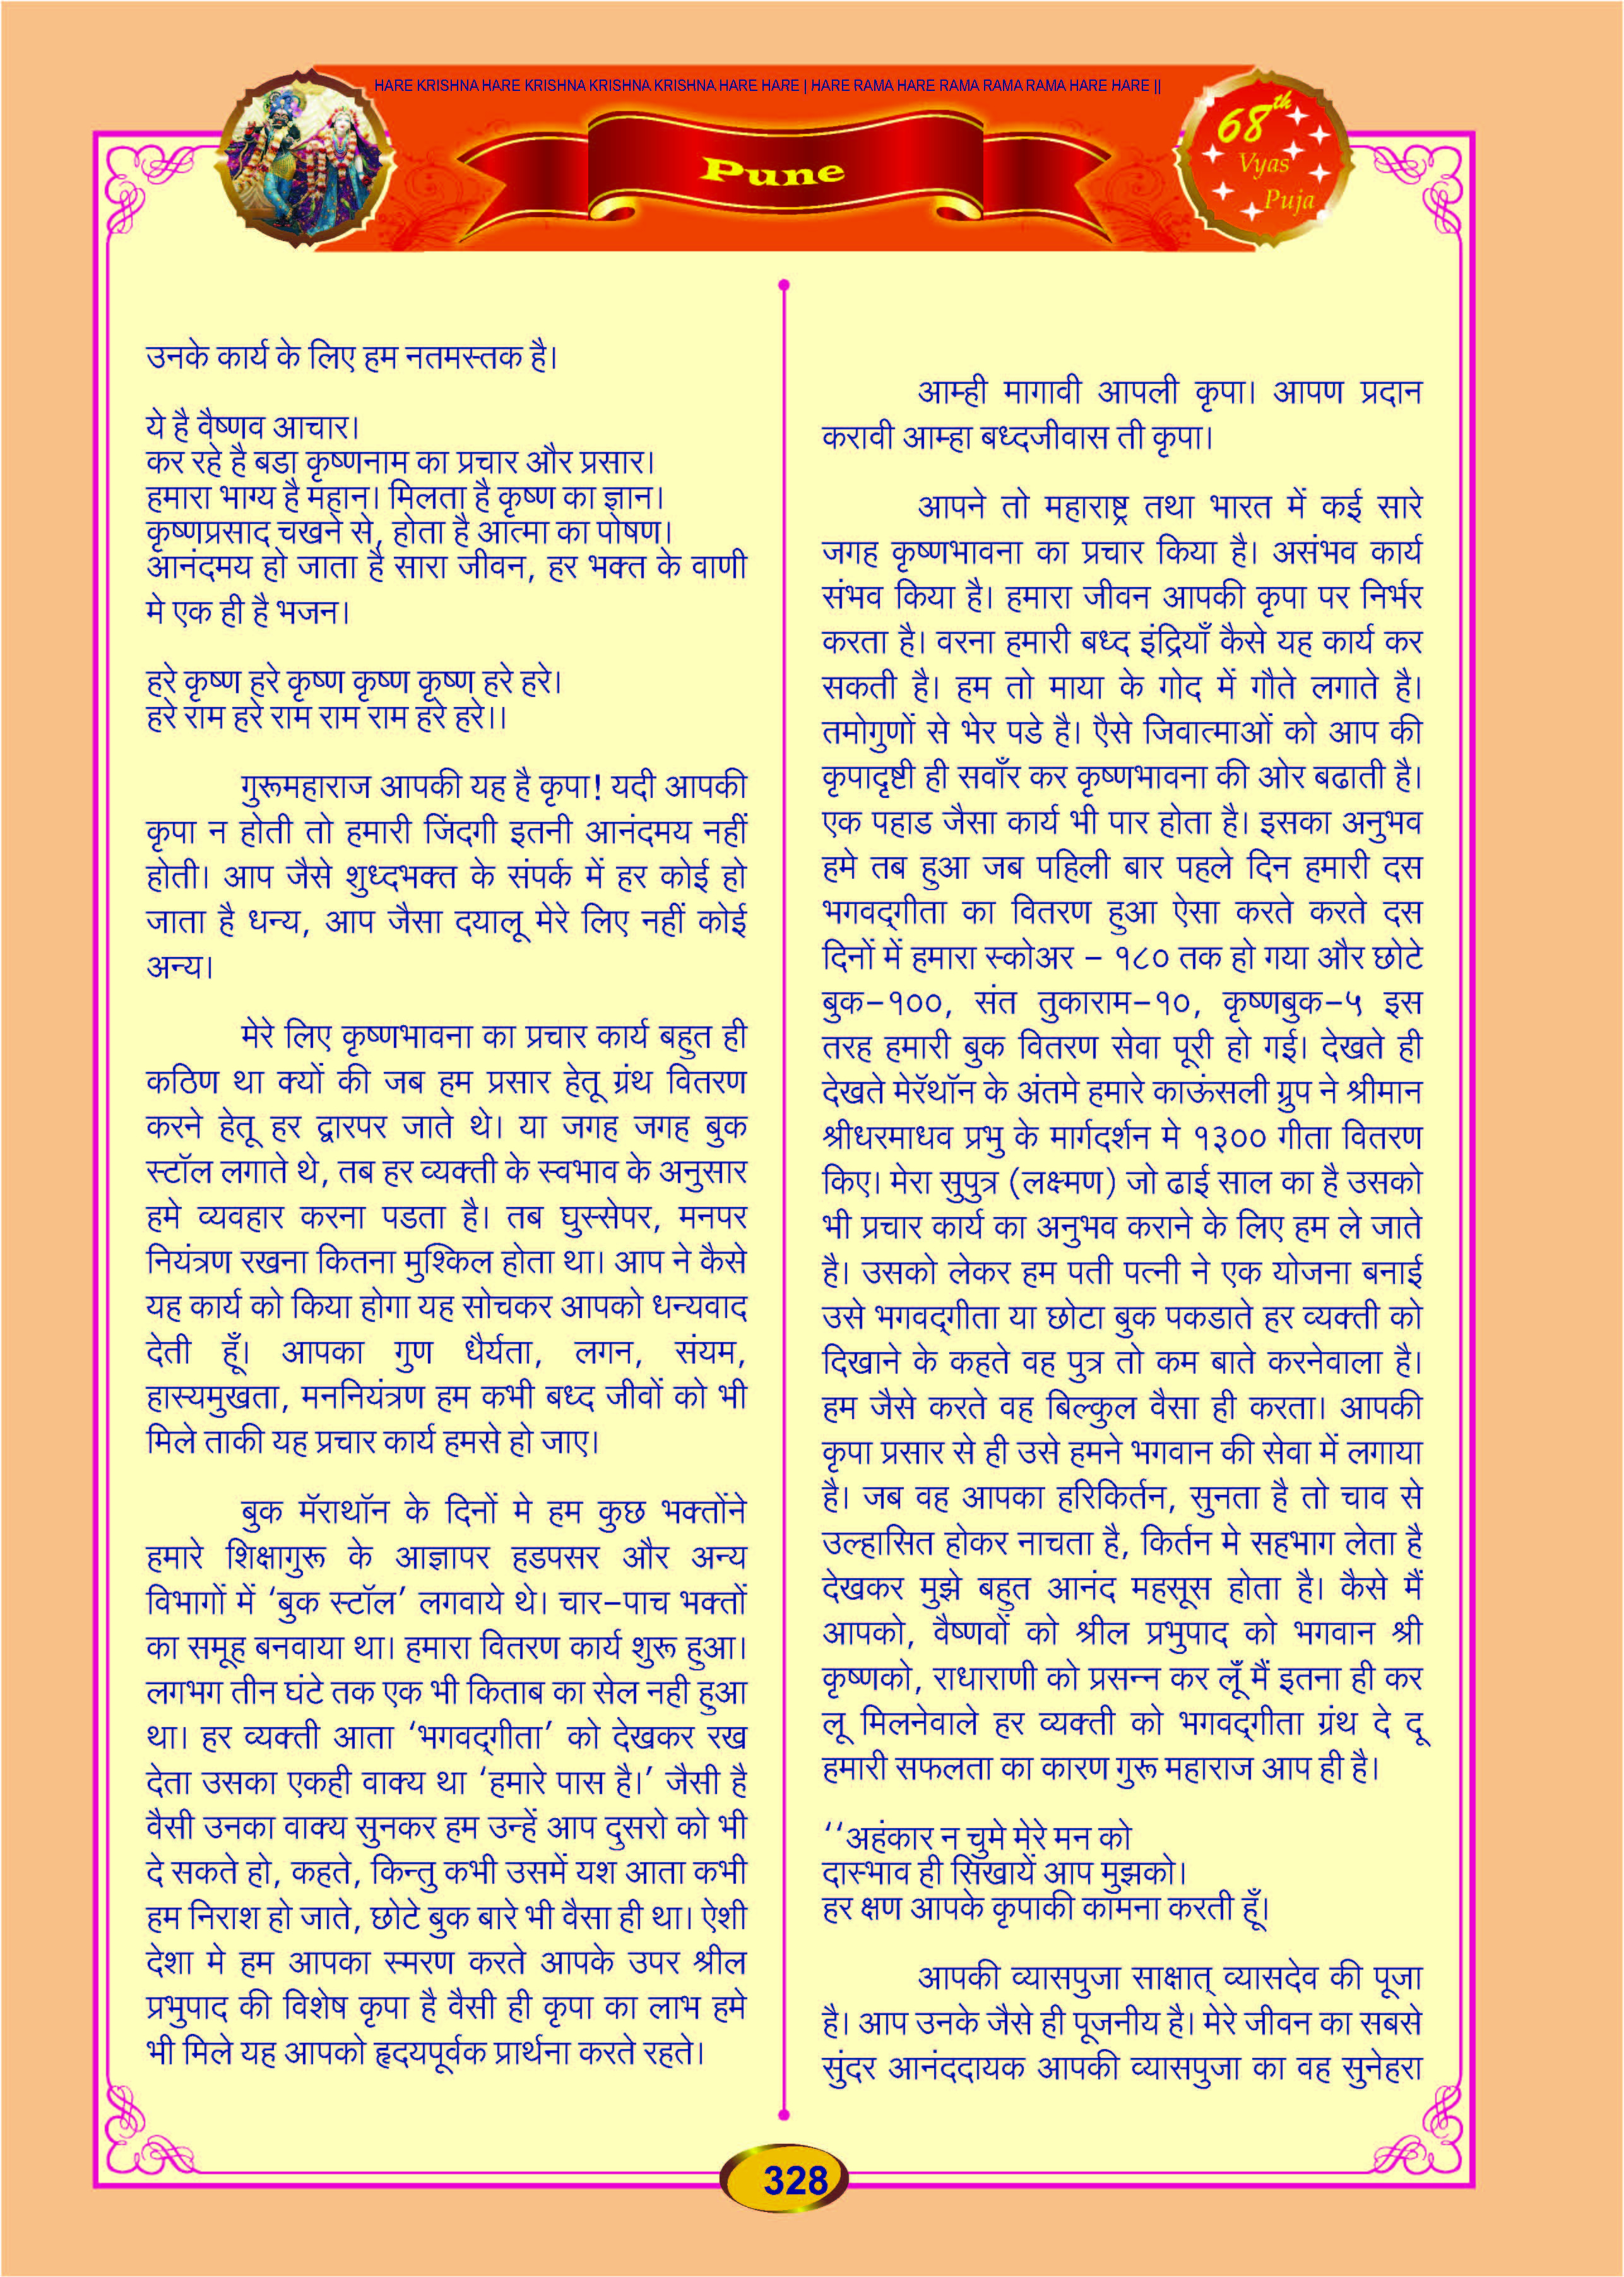 HARE KRISHNA HARE KRISHNA KRISHNA KRISHNA HARE HARE | HARE RAMA HARE RAMA RAMA RAMA HARE HARE ||
Pune
68th
Vyas
Puja
उनके कार्य के लिए हम नतमस्तक है।
ये है वैष्णव आचार।
कर रहे है बडा कृष्णनाम का प्रचार और प्रसार।
हमारा भाग्य है महान। मिलता है कृष्ण का ज्ञान।
कृष्णप्रसाद चखने से, होता है आत्मा का पोषण।
आनंदमय हो जाता है सारा जीवन, हर भक्त के वाणी
मे एक ही है भजन।
हरे कृष्ण हरे कृष्ण कृष्ण कृष्ण हरे हरे।
हरे राम हरे राम राम राम हरे हरे।।
गुरूमहाराज आपकी यह है कृपा! यदी आपकी
कृपा न होती तो हमारी जिंदगी इतनी आनंदमय नहीं
होती। आप जैसे शुध्दभक्त के संपर्क में हर कोई हो
जाता है धन्य, आप जैसा दयालू मेरे लिए नहीं कोई
अन्य।
मेरे लिए कृष्णभावना का प्रचार कार्य बहुत ही
कठिण था क्यों की जब हम प्रसार हेतू ग्रंथ वितरण
करने हेतू हर द्वारपर जाते थे। या जगह जगह बुक
स्टॉल लगाते थे, तब हर व्यक्ती के स्वभाव के अनुसार
हमे व्यवहार करना पडता है। तब घुस्सेपर, मनपर
नियंत्रण रखना कितना मुश्किल होता था। आप ने कैसे
यह कार्य को किया होगा यह सोचकर आपको धन्यवाद
देती हूँ। आपका गुण धैर्यता, लगन, संयम,
हास्यमुखता, मननियंत्रण हम कभी बध्द जीवों को भी
मिले ताकी यह प्रचार कार्य हमसे हो जाए।
बुक मॅराथॉन के दिनों मे हम कुछ भक्तोंने
हमारे शिक्षागुरू के आज्ञापर हडपसर और अन्य
विभागों में ‘बुक स्टॉल’ लगवाये थे। चार-पाच भक्तों
का समूह बनवाया था। हमारा वितरण कार्य शुरू हुआ।
लगभग तीन घंटे तक एक भी किताब का सेल नही हुआ
था। हर व्यक्ती आता ‘भगवद्‌गीता’ को देखकर रख
देता उसका एकही वाक्य था ‘हमारे पास है।’ जैसी है
वैसी उनका वाक्य सुनकर हम उन्हें आप दुसरो को भी
दे सकते हो, कहते, किन्तु कभी उसमें यश आता कभी
हम निराश हो जाते, छोटे बुक बारे भी वैसा ही था। ऐशी
देशा मे हम आपका स्मरण करते आपके उपर श्रील
प्रभुपाद की विशेष कृपा है वैसी ही कृपा का लाभ हमे
भी मिले यह आपको हृदयपूर्वक प्रार्थना करते रहते।
आम्ही मागावी आपली कृपा। आपण प्रदान
करावी आम्हा बध्दजीवास ती कृपा।
आपने तो महाराष्ट्र तथा भारत में कई सारे
जगह कृष्णभावना का प्रचार किया है। असंभव कार्य
संभव किया है। हमारा जीवन आपकी कृपा पर निर्भर
करता है। वरना हमारी बध्द इंद्रियाँ कैसे यह कार्य कर
सकती है। हम तो माया के गोद में गौते लगाते है।
तमोगुणों से भेर पडे है। एैसे जिवात्माओं को आप की
कृपादृष्टी ही सवाँर कर कृष्णभावना की ओर बढाती है।
एक पहाड जैसा कार्य भी पार होता है। इसका अनुभव
हमे तब हुआ जब पहिली बार पहले दिन हमारी दस
भगवद्‌गीता का वितरण हुआ ऐसा करते करते दस
दिनों में हमारा स्कोअर - १८० तक हो गया और छोटे
बुक-१००, संत तुकाराम-१०, कृष्णबुक-५ इस
तरह हमारी बुक वितरण सेवा पूरी हो गई। देखते ही
देखते मेरॅथॉन के अंतमे हमारे काऊंसली ग्रुप ने श्रीमान
श्रीधरमाधव प्रभु के मार्गदर्शन मे १३०० गीता वितरण
किए। मेरा सुपुत्र (लक्ष्मण) जो ढाई साल का है उसको
भी प्रचार कार्य का अनुभव कराने के लिए हम ले जाते
है। उसको लेकर हम पती पत्नी ने एक योजना बनाई
उसे भगवद्‌गीता या छोटा बुक पकडाते हर व्यक्ती को
दिखाने के कहते वह पुत्र तो कम बाते करनेवाला है।
हम जैसे करते वह बिल्कुल वैसा ही करता। आपकी
कृपा प्रसार से ही उसे हमने भगवान की सेवा में लगाया
है। जब वह आपका हरिकिर्तन, सुनता है तो चाव से
उल्हासित होकर नाचता है, किर्तन मे सहभाग लेता है
देखकर मुझे बहुत आनंद महसूस होता है। कैसे मैं
आपको, वैष्णवों को श्रील प्रभुपाद को भगवान श्री
कृष्णको, राधाराणी को प्रसन्न कर लूँ मैं इतना ही कर
लू मिलनेवाले हर व्यक्ती को भगवद्‌गीता ग्रंथ दे दू
हमारी सफलता का कारण गुरू महाराज आप ही है।
‘‘अहंकार न चुमे मेरे मन को
दास्भाव ही सिखायें आप मुझको।
हर क्षण आपके कृपाकी कामना करती हूँ।
आपकी व्यासपुजा साक्षात् व्यासदेव की पूजा
है। आप उनके जैसे ही पूजनीय है। मेरे जीवन का सबसे
सुंदर आनंददायक आपकी व्यासपुजा का वह सुनेहरा
328